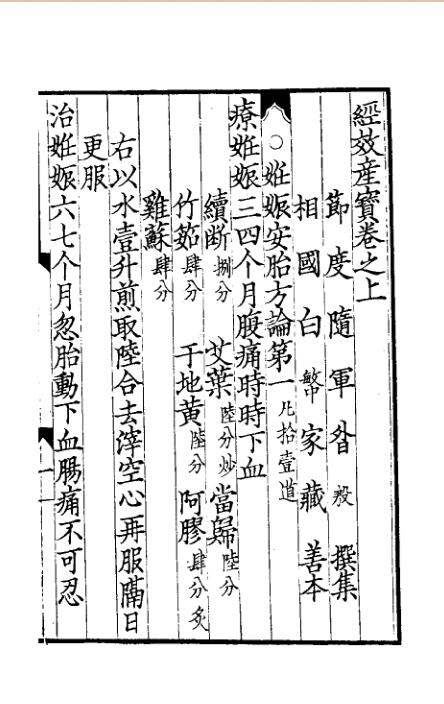 經效產寶卷之上
節度隨軍昝殷撰集
相國白敏中家藏善本
○妊娠安胎方論第一凡拾壹道
療妊娠三四个月腹痛時時下血
續斷捌分 艾葉陸分炒 當歸陸分
竹茹肆分 干地黃陸分 阿膠肆分炙
雞蘇肆分
右以水壹升煎取陸合去滓空心再服隔日
更服
治妊娠六七个月忽胎動下血腸痛不可忍
一